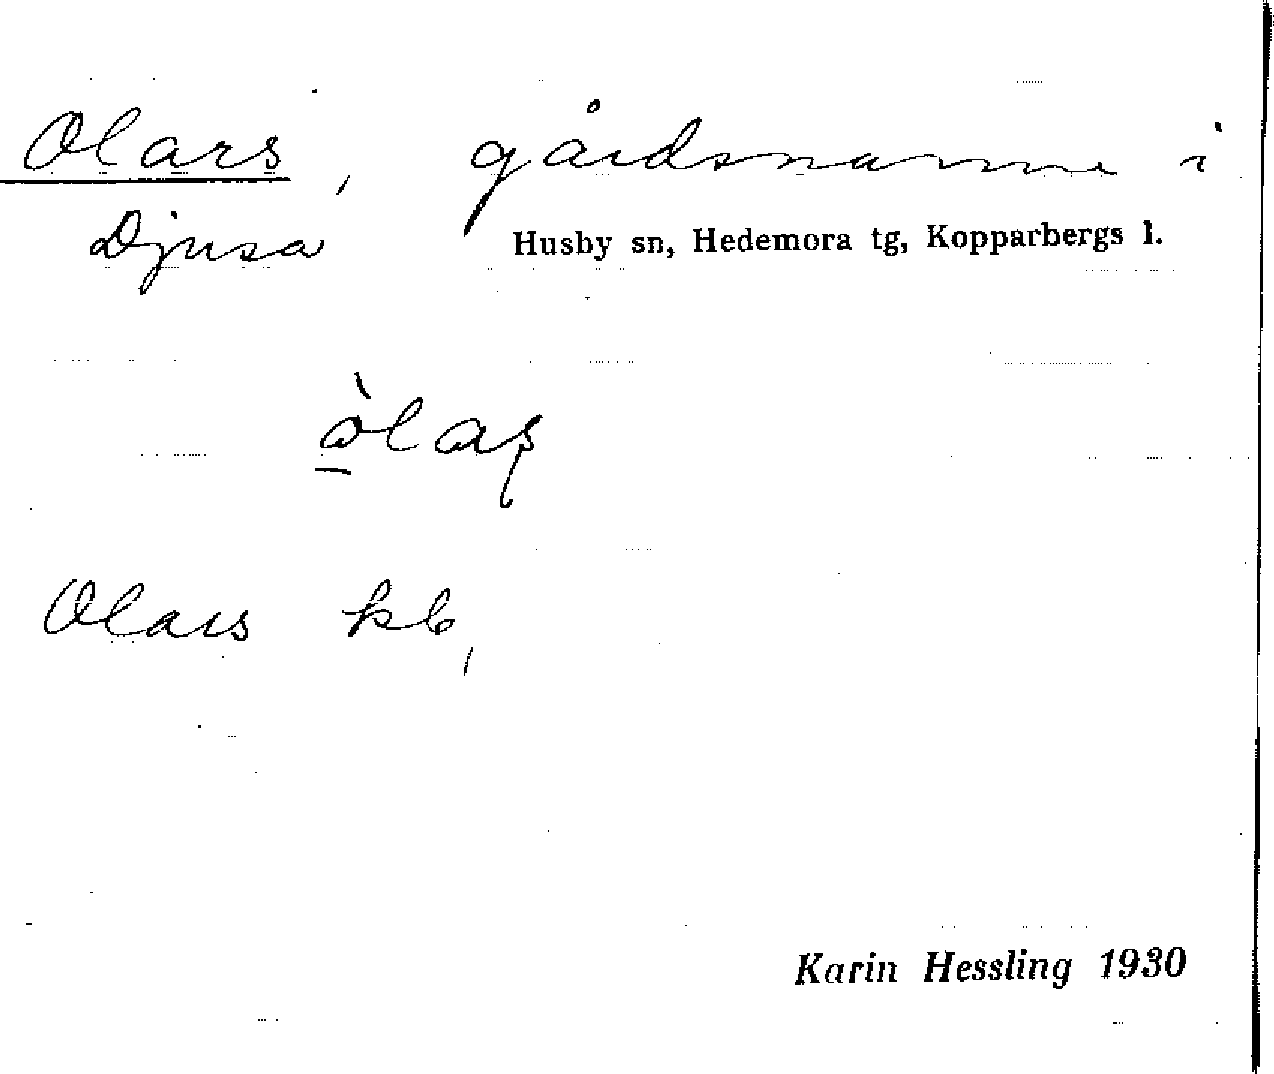 Olars, gårdsnamn i
Djusa Husby sn, Hedemora tg, Kopparbergs l.
Olars kb,
Karin Hessling 1930